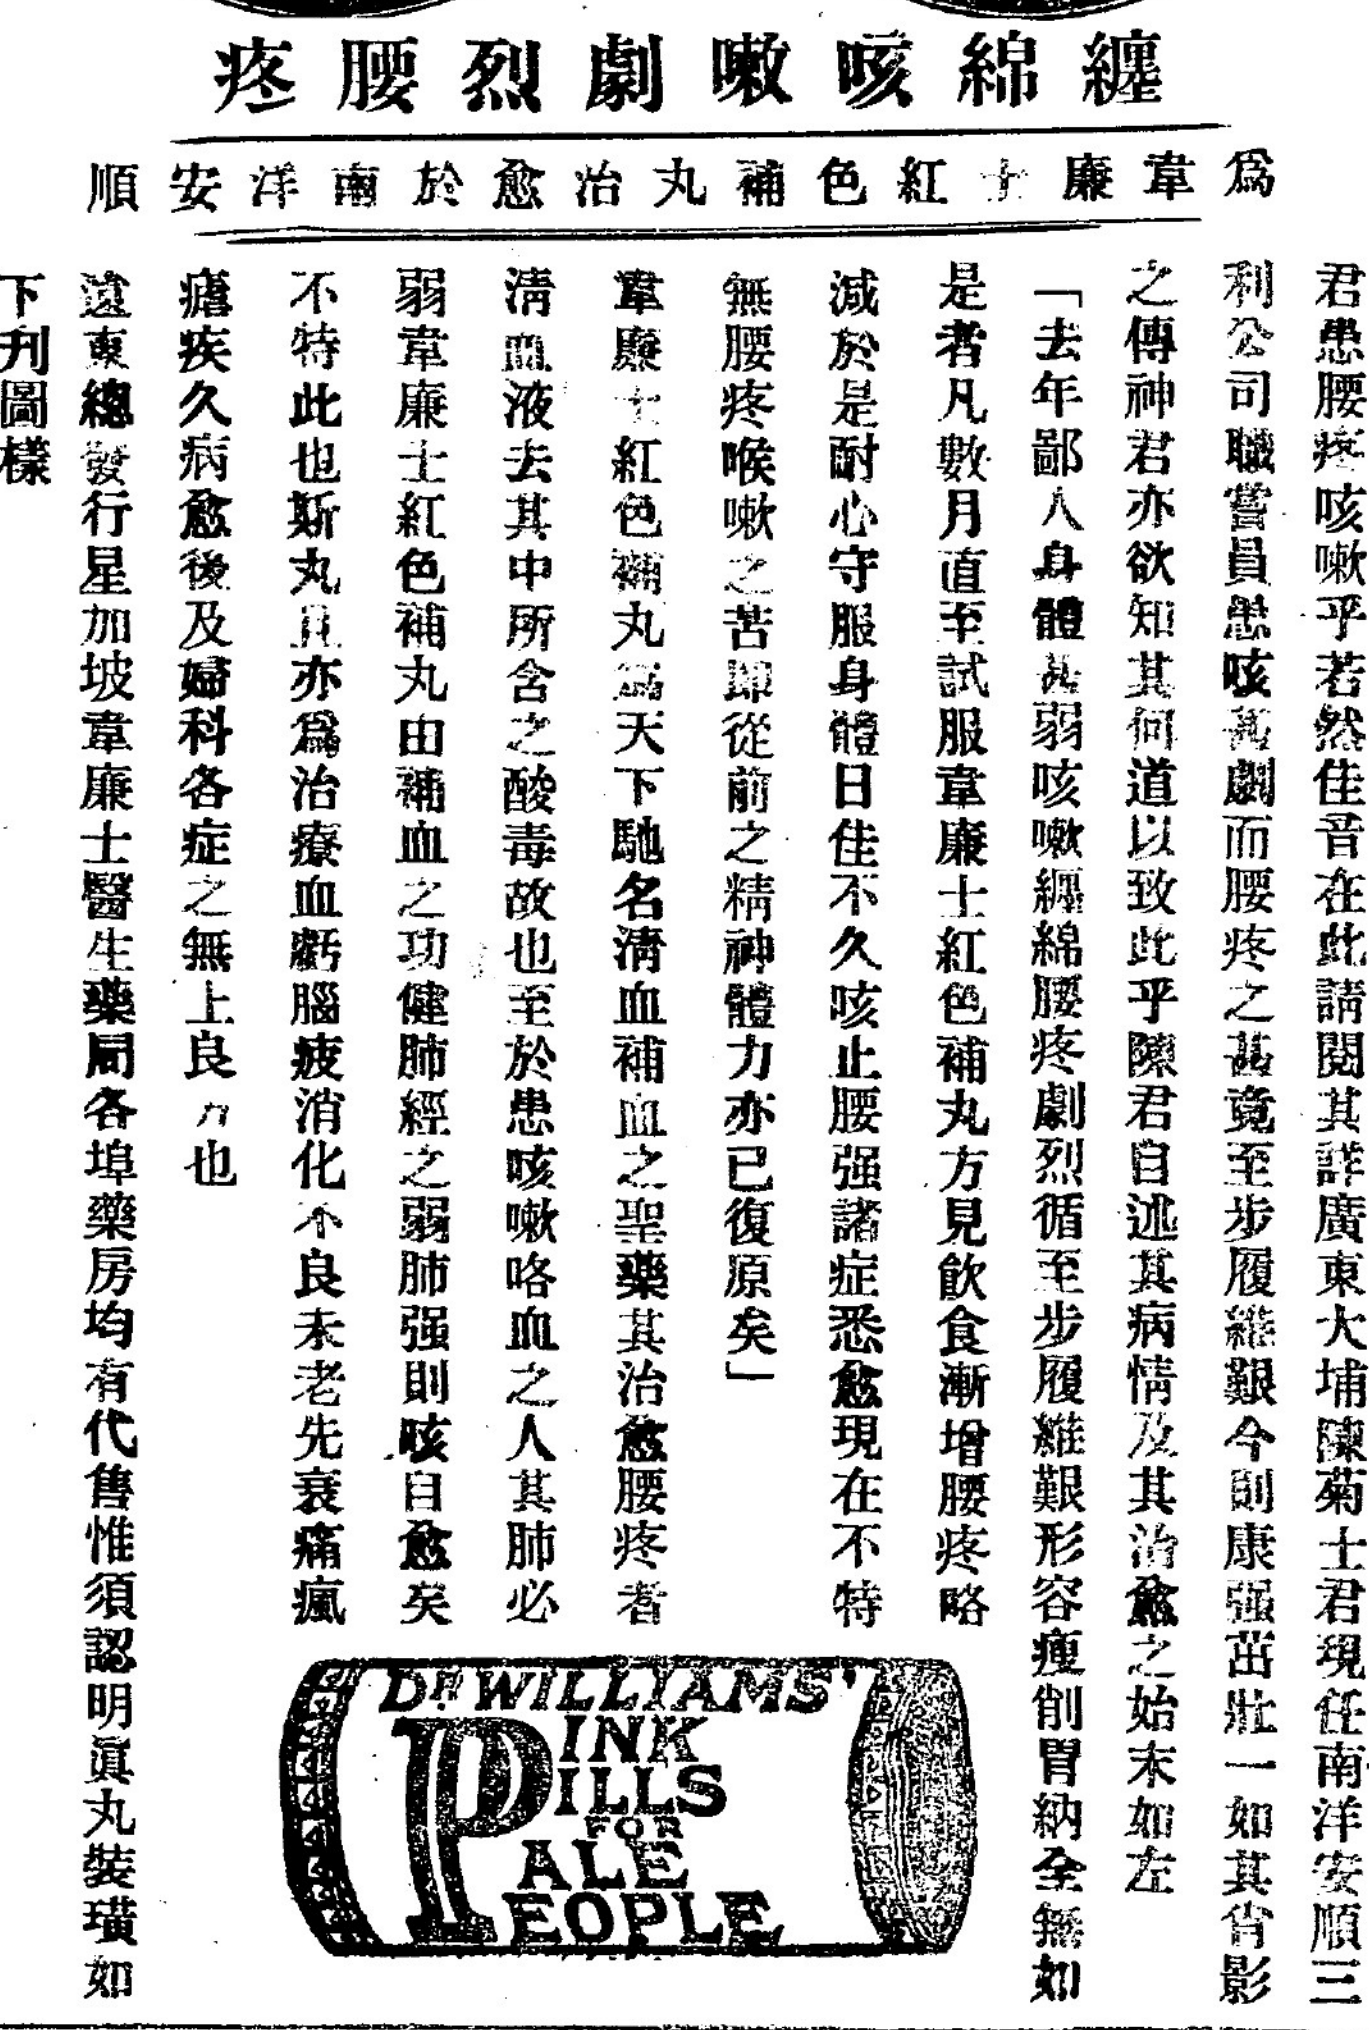 纏綿咳嗽劇烈腰疼
爲韋廉士紅色補丸治愈於南洋安順
君患腰疼咳嗽乎若然佳音在此請閱其詳廣東大埔陳菊士君現任南洋安順三
利公司職嘗員患咳甚劇而腰疼之甚竟至步履維艱今則康强茁壯一如其肖影
之傳神君亦欲知其何道以致此乎陳君自述其病情及其治愈之始末如左
「去年鄙人身體甚弱咳嗽纏綿腰疼劇烈循至步履維艱形容瘦削胃納全無如
是者凡數月直至試服韋廉士紅色補丸方見飮食漸增腰疼略
減於是耐心守服身體日佳不久咳止腰强諸症悉愈現在不特
無腰疼喉嗽之苦即從前之精神體力亦已復原矣」
韋廉士紅色補丸爲天下馳名淸血補血之聖藥其治愈腰疼者
淸血液去其中所含之酸毒故也至於患咳嗽咯血之人其肺必
弱韋廉士紅色補丸由補血之功健肺經之弱肺强則咳自愈矣
不特此也斯丸且亦爲治療血虧腦疲消化不良未老先衰痛瘋
瘧疾久病愈後及婦科各症之無上良力也
遠東總發行星加坡韋廉士醫生藥局各埠藥房均有代售惟須認明眞丸裝璜如
下列圖樣
DR. WILLIAMS'
PINK
PILLS
FOR
PALE
PEOPLE